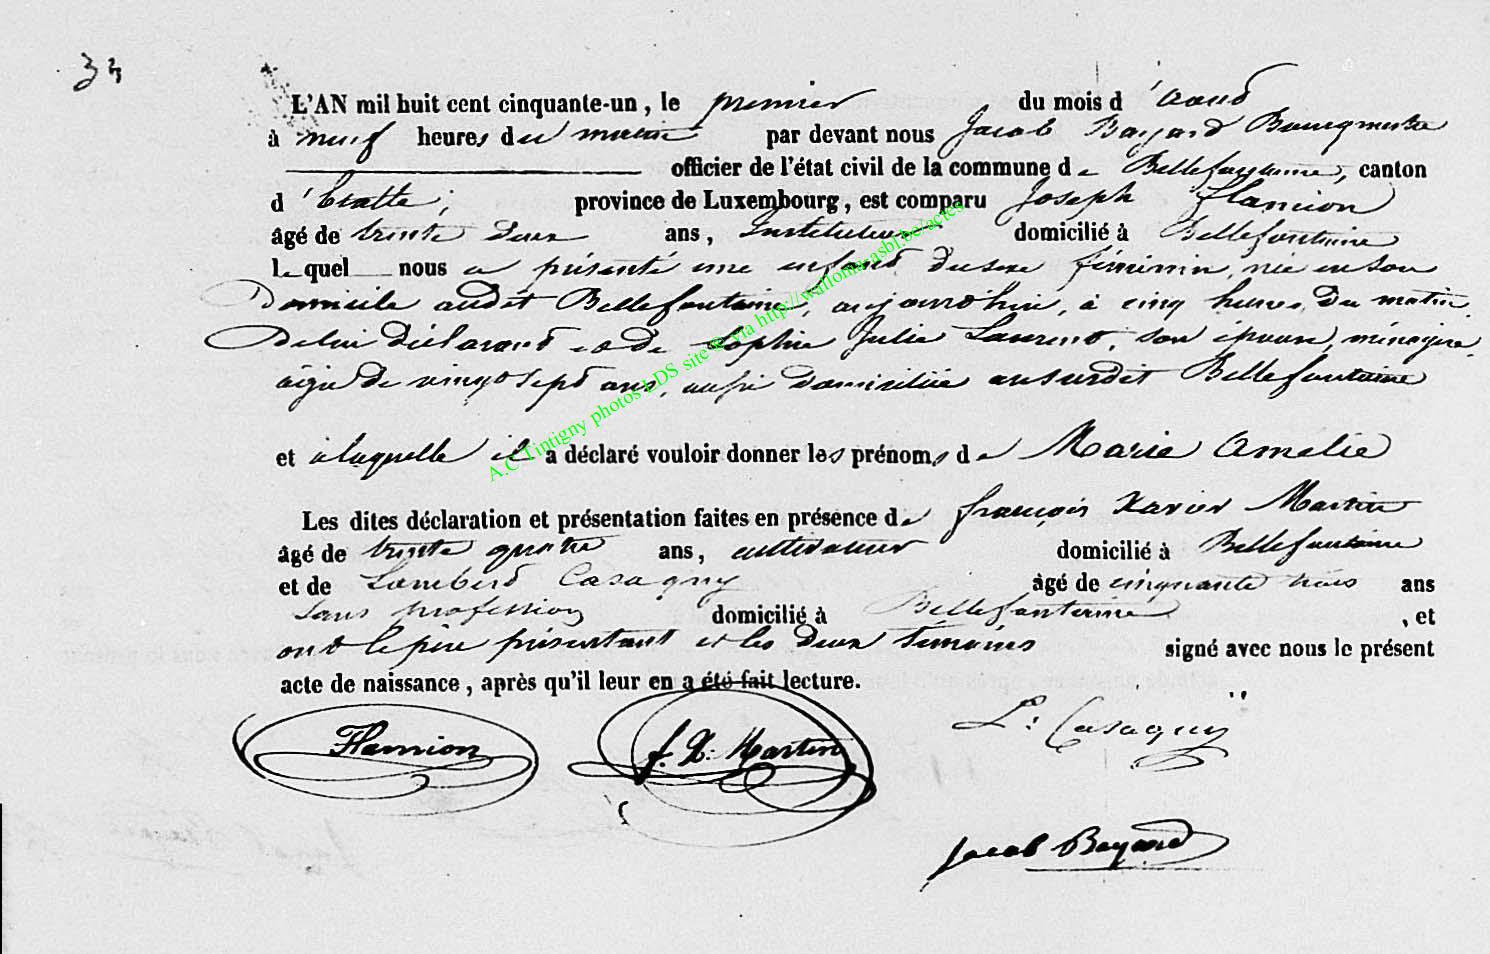 34
L'AN mil huit cent cinquante-un, le premier du mois d'aoud
à neuf heures du matin par devant nous Jacob Bayard Bourgmestre
officier de l'état civil de la commune de Bellefontaine, canton
d'Etalle, province de Luxembourg, est comparu Joseph Flamion
âgé de trente deux ans, Instituteur domicilié à Bellefontaine
lequel nous a présenté une enfant du sexe féminin, née en son
Domicile audit Bellefontaine, aujourd'hui, à cinq heures du matin,
De lui déclarant et de Sophie Julie Laurent, son épouse, ménagère,
âgée de vingt sept ans, aussi domiciliée au susdit Bellefontaine
et à laquelle il a déclaré vouloir donner les prénoms de Marie Amelie
Les dites déclaration et présentation faites en présence de françois Xavier Martin
âgé de trente quatre ans, cultivateur domicilié à Bellefontaine
et de Lambert Casaquy âgé de cinquante trois ans
sans profession domicilié à Bellefontaine, et
ont le père présentant et les deux témoins signé avec nous le présent
acte de naissance, après qu'il leur en a été fait lecture.
Flamion f. X. Martin L: Casaquy
Jacob Bayard
A.C Tintigny photos LDS site via http://wallonia-asbl.be/actes